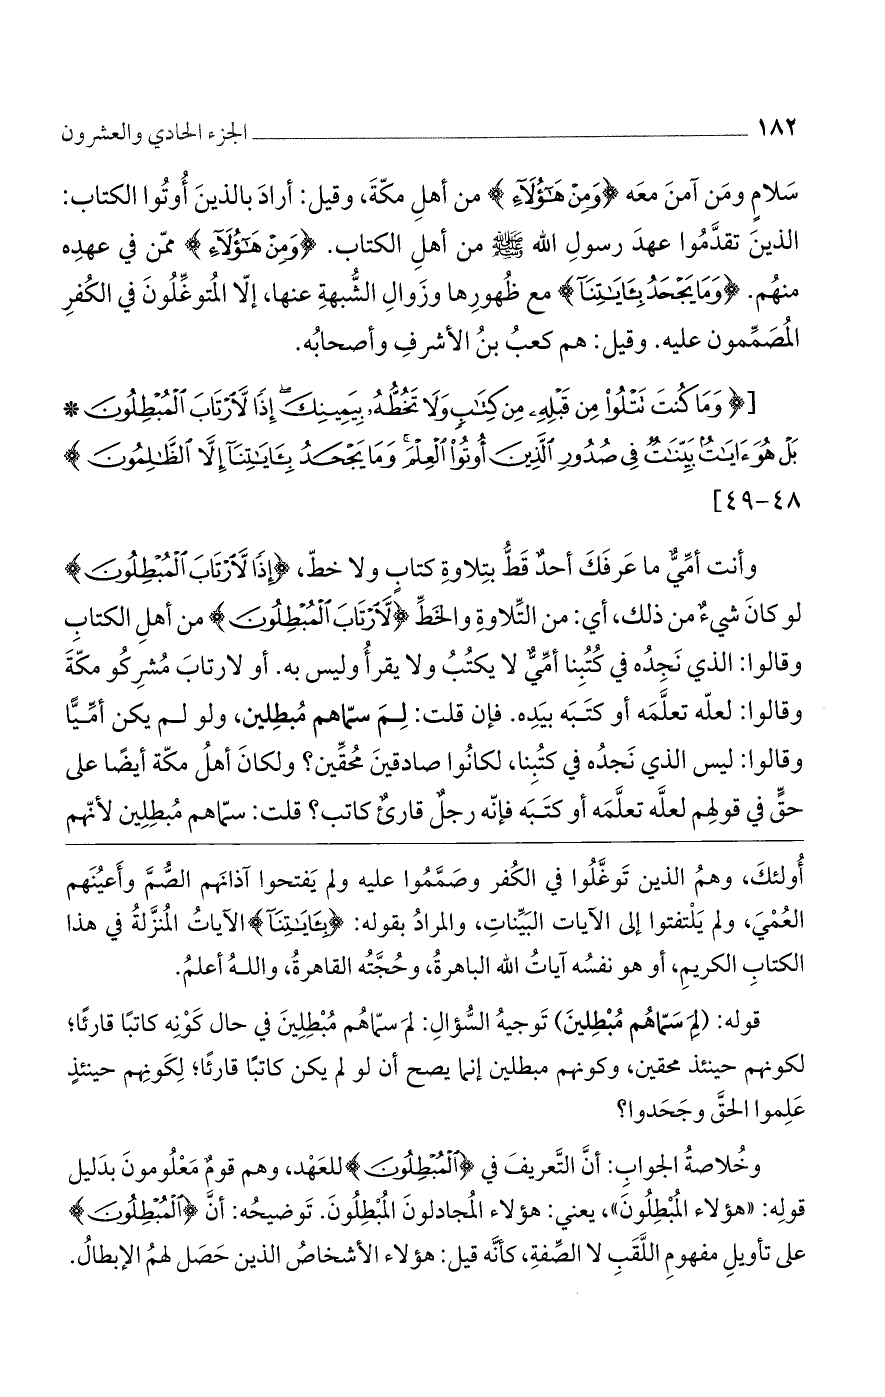 ١٨٢ ـــــــــــــــــــــــــــــــــــــــــــــــــــــــــــــــ الجزء الحادي والعشرون
سَلامٍ ومَن آمنَ معَه ﴿وَمِنْ هَـٰٓؤُلَآءِ﴾ من أهلِ مكّةَ، وقيل: أرادَ بالذينَ أُوتُوا الكتابَ:
الذينَ تقدَّمُوا عهدَ رسولِ الله ﷺ من أهلِ الكتاب. ﴿وَمِنْ هَـٰٓؤُلَآءِ﴾ ممّن في عهدِه
منهُم. ﴿وَمَا يَجْحَدُ بِـَٔايَـٰتِنَآ﴾ مع ظُهورِها وزَوالِ الشُّبهةِ عنها، إلّا المُتوغِّلُونَ في الكُفرِ
المُصَمِّمون عليه. وقيل: هم كعبُ بنُ الأشرفِ وأصحابُه.
[﴿وَمَا كُنتَ تَتْلُوا۟ مِن قَبْلِهِۦ مِن كِتَـٰبٍ وَلَا تَخُطُّهُۥ بِيَمِينِكَ ۖ إِذًا لَّٱرْتَابَ ٱلْمُبْطِلُونَ *
بَلْ هُوَ ءَايَـٰتٌۢ بَيِّنَـٰتٌ فِى صُدُورِ ٱلَّذِينَ أُوتُوا۟ ٱلْعِلْمَ ۚ وَمَا يَجْحَدُ بِـَٔايَـٰتِنَآ إِلَّا ٱلظَّـٰلِمُونَ﴾
٤٨-٤٩]
وأنت أمِّيٌّ ما عَرفَكَ أحدٌ قَطُّ بتِلاوةِ كتابٍ ولا خطّ، ﴿إِذًا لَّٱرْتَابَ ٱلْمُبْطِلُونَ﴾
لو كانَ شيءٌ من ذلك، أي: من التِّلاوةِ والخَطِّ ﴿لَّٱرْتَابَ ٱلْمُبْطِلُونَ﴾ من أهلِ الكتابِ
وقالوا: الذي نَجِدُه في كُتُبِنا أمِّيٌّ لا يكتُبُ ولا يقرأُ وليس به. أو لارتابَ مُشرِكُو مكّةَ
وقالوا: لعلّه تعلَّمَه أو كتَبَه بيَدِه. فإن قلت: لِمَ سمّاهم مُبطِلين، ولو لم يكن أمِّيًّا
وقالوا: ليس الذي نَجدُه في كتُبِنا، لكانُوا صادقينَ مُحقِّين؟ ولكانَ أهلُ مكّة أيضًا على
حقٍّ في قولِهم لعلَّه تعلَّمَه أو كتَبَه فإنّه رجلٌ قارئٌ كاتب؟ قلت: سمّاهم مُبطِلِين لأنّهم
أُولئكَ، وهمُ الذين تَوغَّلُوا في الكُفر وصَمَّمُوا عليه ولم يَفتحوا آذانَهم الصُّمَّ وأَعيُنَهم
العُمْيَ، ولم يَلْتفتوا إلى الآيات البَيِّناتِ، والمرادُ بقوله: ﴿بِـَٔايَـٰتِنَآ﴾ الآياتُ المُنزَّلةُ في هذا
الكتابِ الكريمِ، أو هو نفسُه آياتُ الله الباهرةُ، وحُجَّتُه القاهرةُ، واللهُ أعلمُ.
قوله: (لِمَ سَمّاهُم مُبْطِلينَ) تَوجيهُ السُّؤالِ: لمَ سمّاهُم مُبْطِلِينَ في حال كَوْنِه كاتبًا قارئًا؛
لكونهم حينئذ محقين، وكونهم مبطلين إنما يصح أن لو لم يكن كاتبًا قارئًا؛ لِكَونِهم حينئذٍ
عَلِموا الحقَّ وجَحَدوا؟
وخُلاصةُ الجواب: أنَّ التَّعريفَ في ﴿ٱلْمُبْطِلُونَ﴾ للعَهْد، وهم قومٌ مَعْلُومونَ بدَليل
قولِه: «هؤلاء المُبْطِلُونَ»، يعني: هؤلاء المُجادلونَ المُبْطِلُونَ. تَوضيحُه: أنَّ ﴿ٱلْمُبْطِلُونَ﴾
على تأويلِ مفهومِ اللَّقَبِ لا الصِّفةِ، كأنَّه قيل: هؤلاء الأشخاصُ الذين حَصَل لهمُ الإبطالُ.